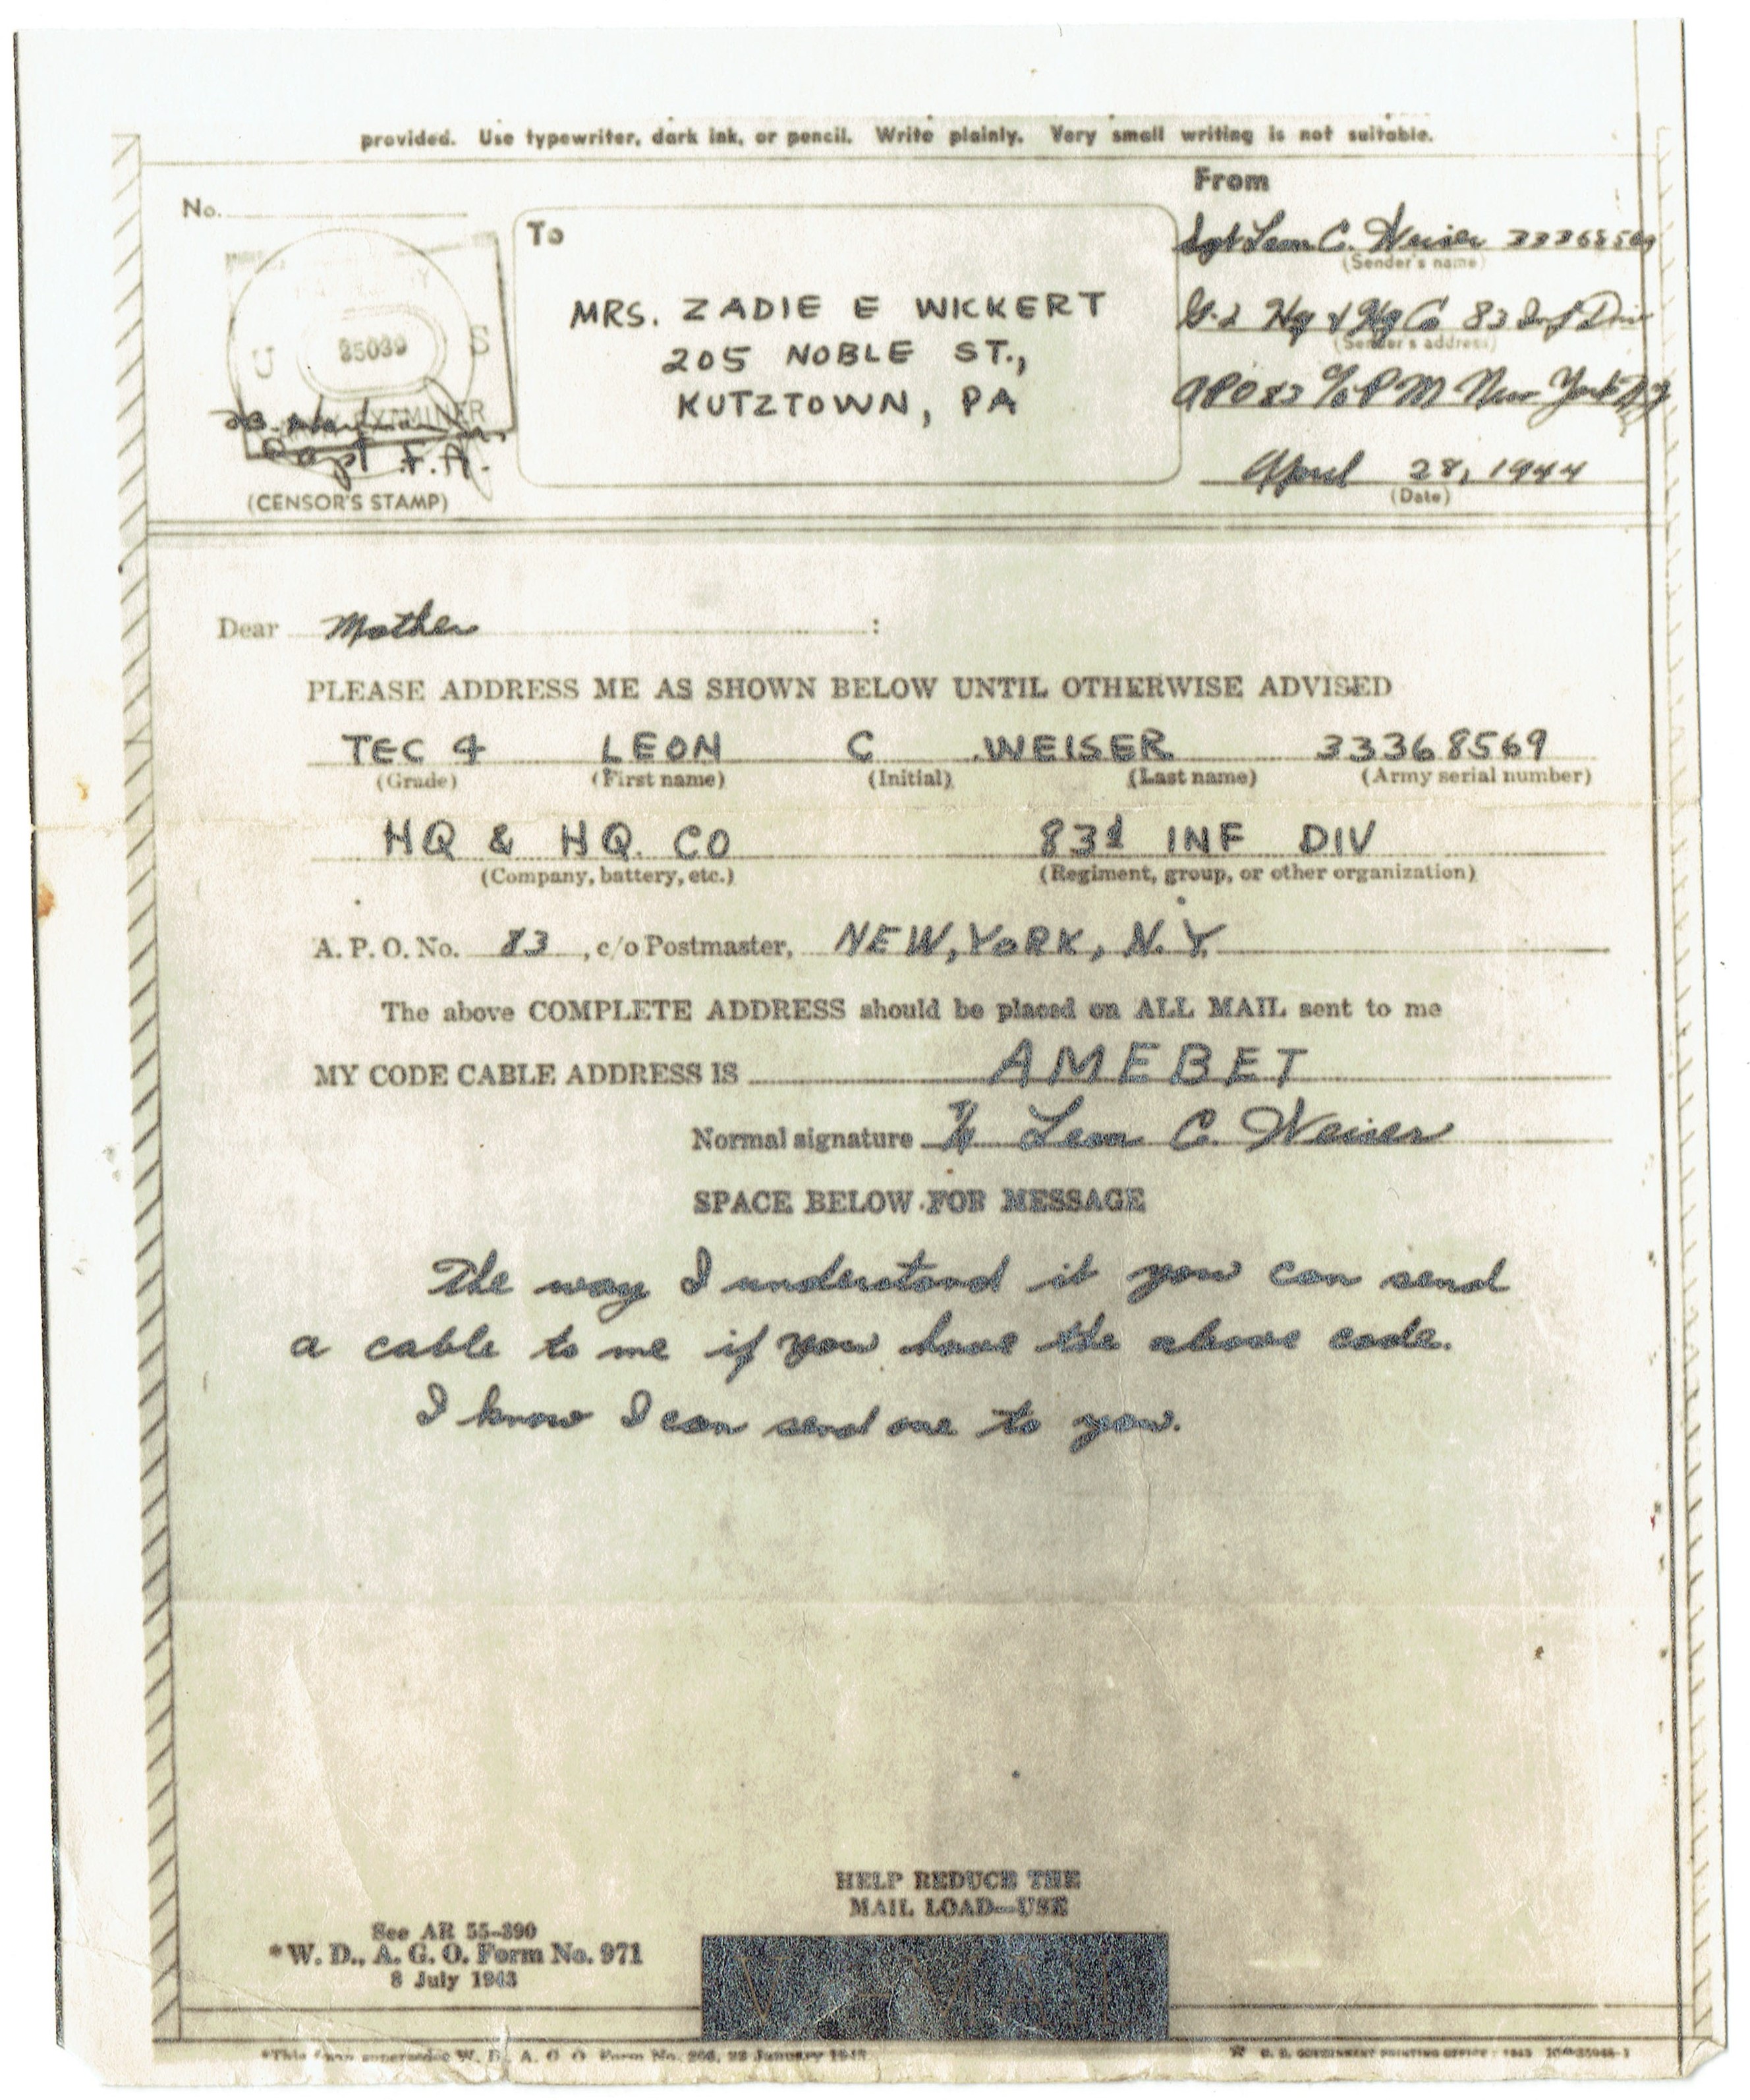 provided. Use typewriter, dark ink, or pencil. Write plainly. Very small writing is not suitable.
No.
U 35039 S
EXAMINER
Capt F.A.
(CENSOR'S STAMP)
To
MRS. ZADIE E WICKERT
205 NOBLE ST.,
KUTZTOWN, PA
From
Sgt Leon C. Weiser 33368569
(Sender's name)
G-2 Hq & Hq Co 83 Inf Div
(Sender's address)
APO 83 c/o PM New York NY
April 28, 1944
(Date)
Dear Mother :
PLEASE ADDRESS ME AS SHOWN BELOW UNTIL OTHERWISE ADVISED
TEC 4 LEON C WEISER 33368569
(Grade) (First name) (Initial) (Last name) (Army serial number)
HQ & HQ. CO 83d INF DIV
(Company, battery, etc.) (Regiment, group, or other organization)
A. P. O. No. 83, c/o Postmaster, NEW, YORK, N.Y.
The above COMPLETE ADDRESS should be placed on ALL MAIL sent to me
MY CODE CABLE ADDRESS IS AMEBET
Normal signature T/4 Leon C. Weiser
SPACE BELOW FOR MESSAGE
The way I understand it you can send
a cable to me if you have the above code.
I know I can send one to you.
HELP REDUCE THE
MAIL LOAD—USE
V-MAIL
See AR 55-390
*W. D., A. G. O. Form No. 971
8 July 1943
*This form supersedes W. D., A. G. O. Form No. 206, 22 January 1943
☆ U. S. GOVERNMENT PRINTING OFFICE : 1943